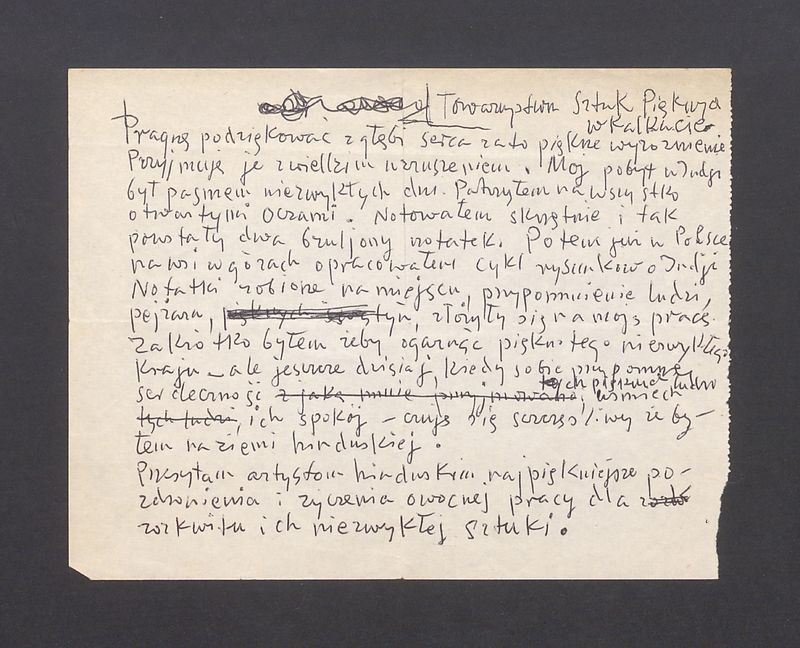 Towarzystwu Sztuk Pięknych
w Kalkucie
Pragnę podziękować z głębi serca za to piękne wyróżnienie
Przyjmuję je z wielkim wzruszeniem. Mój pobyt w Indji
był pasmem niezwykłych dni. Patrzyłem na wszystko
otwartymi oczami. Notowałem skrzętnie i tak
powstały dwa bruljony notatek. Potem już w Polsce
na wsi w górach opracowałem cykl rysunków o Indji
Notatki robione na miejscu, przypomnienie ludzi,
pejzażu, pięknych świątyń, złożyły się na moją pracę.
Za krótko byłem żeby ogarnąć piękno tego niezwykłego
kraju – ale jeszcze dzisiaj, kiedy sobie przypomnę
tych pięknych ludzi
serdeczność z jaką mnie przyjmowano, uśmiech
tych ludzi, ich spokój – czuję się szczęśliwy że by-
łem na ziemi hinduskiej.
Przesyłam artystom hinduskim najpiękniejsze po-
zdrowienia i życzenia owocnej pracy dla
rozkwitu ich niezwykłej sztuki.